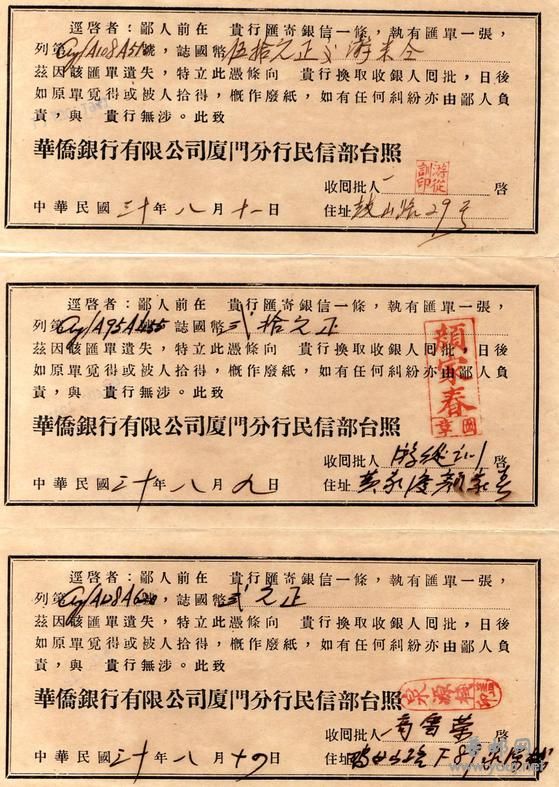 逕啓者：鄙人前在 貴行匯寄銀信一條，執有匯單一張，
列第 Cy/A108A511 號，誌國幣伍拾元正
茲因該匯單遺失，特立此憑條向 貴行換取收銀人囘批，日後
如原單覓得或被人拾得，概作廢紙，如有任何糾紛亦由鄙人負
責，與 貴行無涉。此致
華僑銀行有限公司厦門分行民信部台照
游從訓印
收囘批人 啓
中華民國三十年八月十一日 住址鼓山路29号
逕啓者：鄙人前在 貴行匯寄銀信一條，執有匯單一張，
列第 Cy/A95A 號，誌國幣弍拾元正
茲因該匯單遺失，特立此憑條向 貴行換取收銀人囘批，日後
如原單覓得或被人拾得，概作廢紙，如有任何糾紛亦由鄙人負
責，與 貴行無涉。此致
顏家春
圖章
華僑銀行有限公司厦門分行民信部台照
收囘批人 游從訓 啓
中華民國三十年八月九日 住址
逕啓者：鄙人前在 貴行匯寄銀信一條，執有匯單一張，
列第 號，誌國幣弍元正
茲因該匯單遺失，特立此憑條向 貴行換取收銀人囘批，日後
如原單覓得或被人拾得，概作廢紙，如有任何糾紛亦由鄙人負
責，與 貴行無涉。此致
華僑銀行有限公司厦門分行民信部台照
收囘批人 啓
中華民國三十年八月十四日 住址